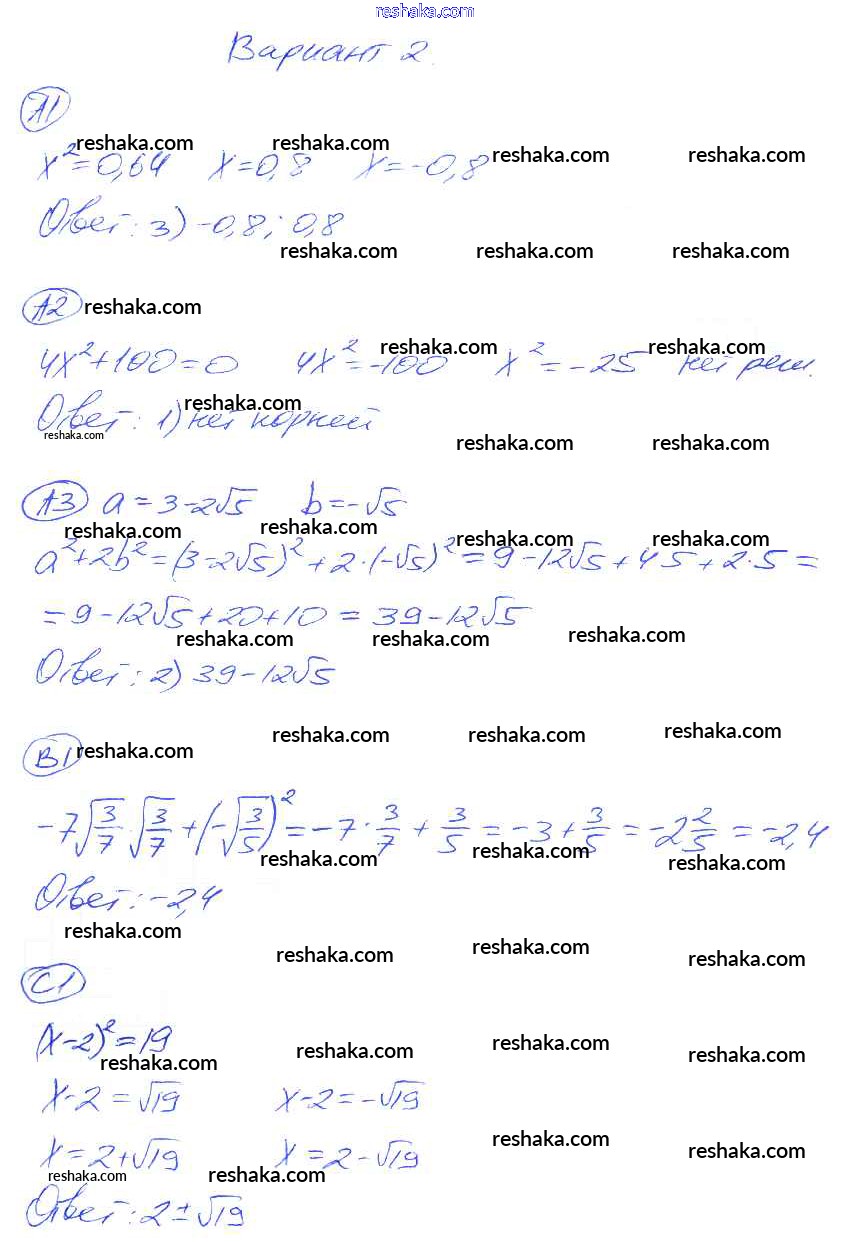 reshaka.com
Вариант 2.
А1
reshaka.com reshaka.com reshaka.com reshaka.com
x² = 0,64 x = 0,8 x = -0,8
Ответ: 3) -0,8; 0,8
reshaka.com reshaka.com reshaka.com
А2 reshaka.com
4x² + 100 = 0 4x² = -100 x² = -25 нет реш.
reshaka.com reshaka.com
reshaka.com
Ответ: 1) нет корней
reshaka.com reshaka.com reshaka.com
А3 a = 3 - 2√5 b = -√5
reshaka.com reshaka.com reshaka.com reshaka.com
a² + 2b² = (3 - 2√5)² + 2·(-√5)² = 9 - 12√5 + 4·5 + 2·5 =
= 9 - 12√5 + 20 + 10 = 39 - 12√5
reshaka.com reshaka.com reshaka.com
Ответ: 2) 39 - 12√5
В1 reshaka.com reshaka.com reshaka.com reshaka.com
-7√(3/7) √(3/7) + (-√(3/5))² = -7 · 3/7 + 3/5 = -3 + 3/5 = -2 2/5 = -2,4
reshaka.com reshaka.com reshaka.com
Ответ: -2,4
reshaka.com reshaka.com reshaka.com reshaka.com
С1
(x - 2)² = 19
reshaka.com reshaka.com reshaka.com reshaka.com
x - 2 = √19 x - 2 = -√19
x = 2 + √19 x = 2 - √19
reshaka.com reshaka.com reshaka.com reshaka.com
Ответ: 2 ± √19